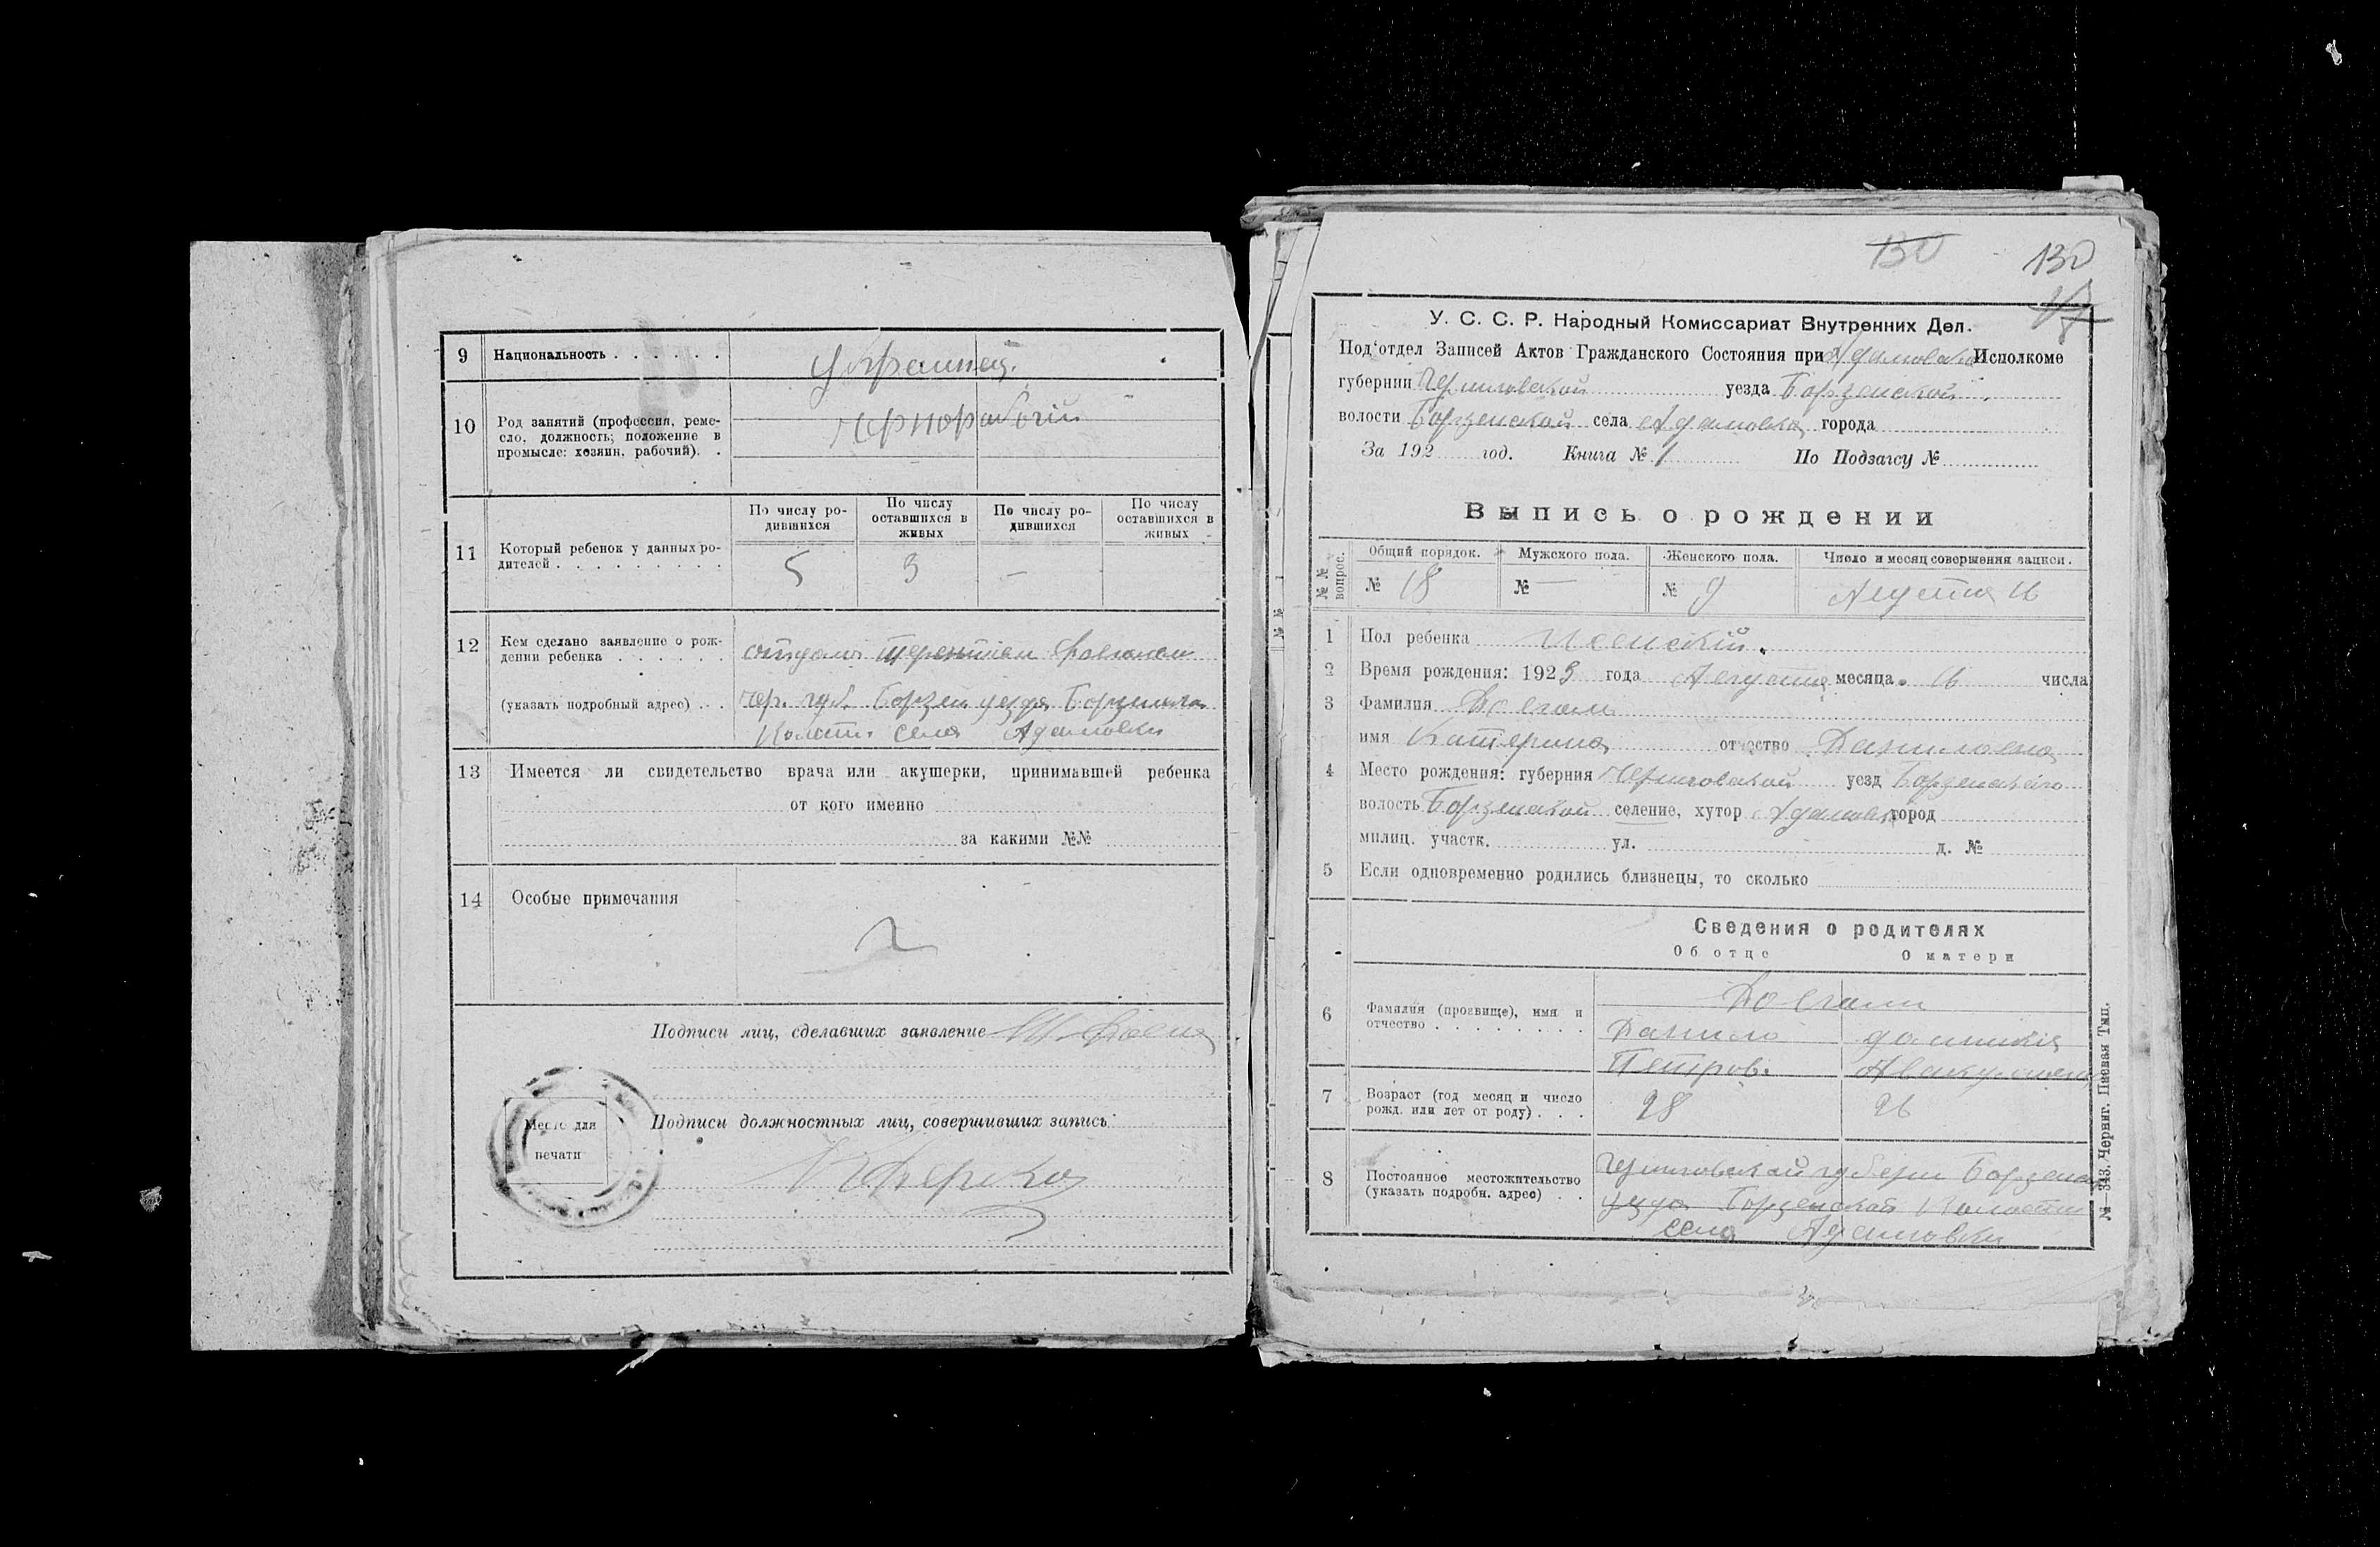 9 Национальность . . . . . .
Украинец.
10 Род занятий (профессия, реме-
сло, должность; положение в
промысле: хозяин, рабочий). .
чернорабочій
11 Который ребенок у данных ро-
дителей . . . . . . . . .
По числу ро-
дившихся
По числу
оставшихся в
живых
По числу ро-
дившихся
По числу
оставшихся в
живых
5 3 —
12 Кем сделано заявление о рож-
дении ребенка . . . . . .
(указать подробный адрес) . . .
чер. губ. Борзен уезда
Волости села Адамовки
13 Имеется ли свидетельство врача или акушерки, принимавшей ребенка
от кого именно
за какими №№
14 Особые примечания
Подписи лиц, сделавших заявление
Место для
печати
Подписи должностных лиц, совершивших запись:
130 130
У. С. С. Р. Народный Комиссариат Внутренних Дел.
Под'отдел Записей Актов Гражданского Состояния при Исполкоме
губернии Черниговской уезда Борзенской
волости Борзенской села Адамовка города
За 192 год. Книга № 1 По Подзагсу №
Выпись о рождении
№ № вопрос.
Общий порядок. Мужского пола. Женского пола. Число и месяц совершения записи.
№ 18 № — № 9 Августа 16
1 Пол ребенка Женскій.
2 Время рождения: 1923 года Августа месяца 16 числа
3 Фамилия Довгаль
имя Катерина отчество Даниловна
4 Место рождения: губерния Черниговской уезд Борзенского
волость Борзенской селение, хутор Адамовка город
милиц. участк. ул. д. №
5 Если одновременно родились близнецы, то сколько
Сведения о родителях
Об отце О матери
6 Фамилия (прозвище), имя и
отчество . . . . . . . .
Данило
Петров.
7 Возраст (год месяц и число
рожд. или лет от роду) . . .
28 26
8 Постоянное местожительство
(указать подробн. адрес) . .
Черниговской губерни
уезда Борзенской Волости
села Адамовки
№ 343. Черниг. Паевая Тип.